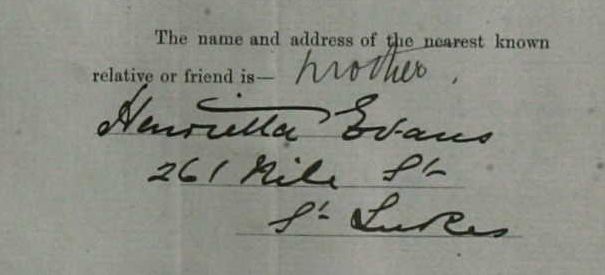 The name and address of the nearest known
relative or friend is— Mother.
Henrietta Evans
261 Nile St
St Lukes